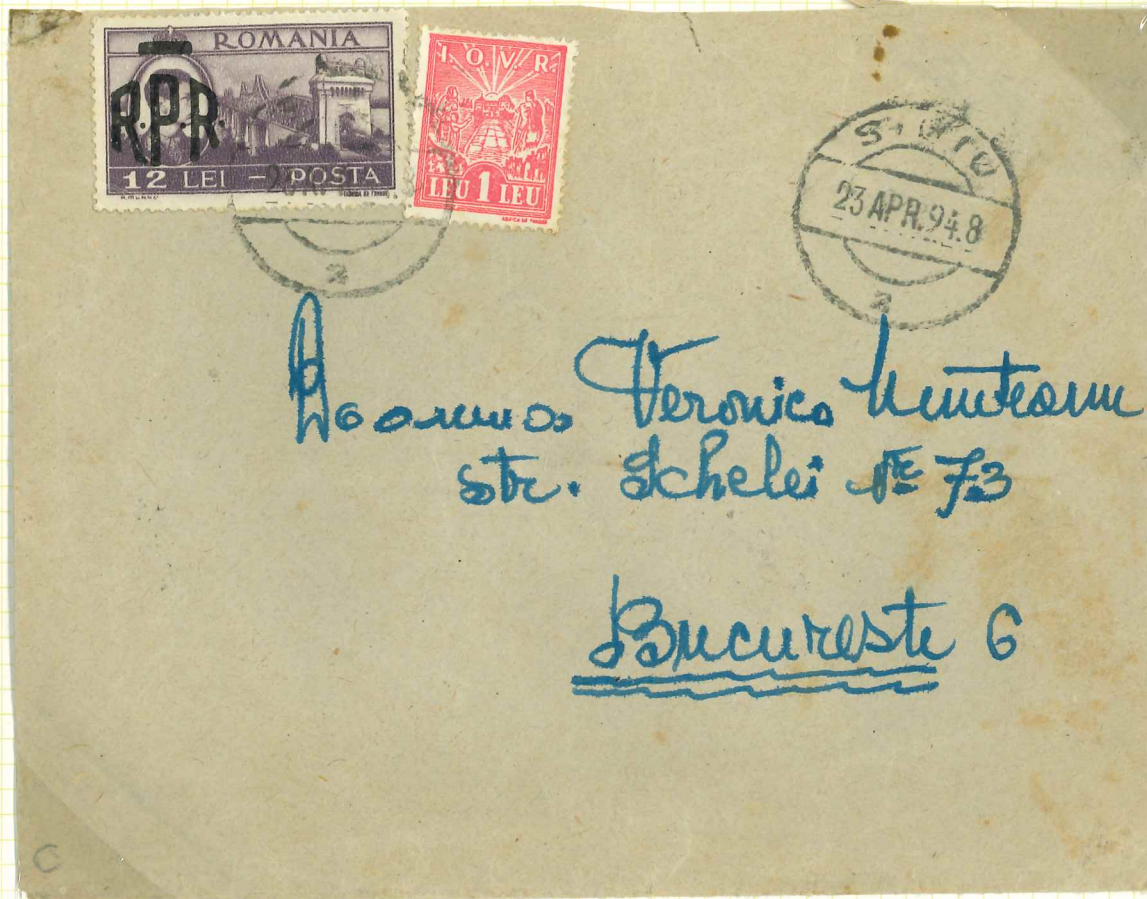 ROMANIA
R·P·R
12 LEI – POSTA
I.O.V.R.
LEU 1 LEU
SIBIU
23 APR. 94.8
2
2
Doamna Veronica Munteanu
str. Schelei Nr 73
Bucureste 6
C